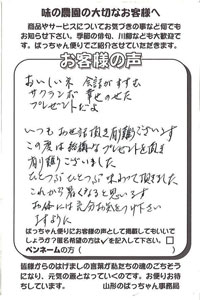 味の農園の大切なお客様へ
商品やサービスについてお気づきの事など何でも
お知らせ下さい。季節の俳句、川柳なども大歓迎で
す。ばっちゃん便りでご紹介させていただきます。
お客様の声
おいしいネ 会話がはずむ
サクランボ 幸せのせた
プレゼントだよ
いつもお世話頂き有難うございます
この度は結構なプレゼントを頂き
有難うございました
ひとつぶひとつぶ味わって頂きました
これから暑くなると思います
お体には充分お気をつけ下さい
ますように
ばっちゃん便りにお客様の声として掲載してもいいで
しょうか?匿名希望の方は✓を記入して下さい。 □
ペンネームの方(                )
皆様からのはげましの言葉が私たちの魂のごちそう
になり、元気の素となっていくのです。お便りお待
ちしています。 山形のばっちゃん事務局